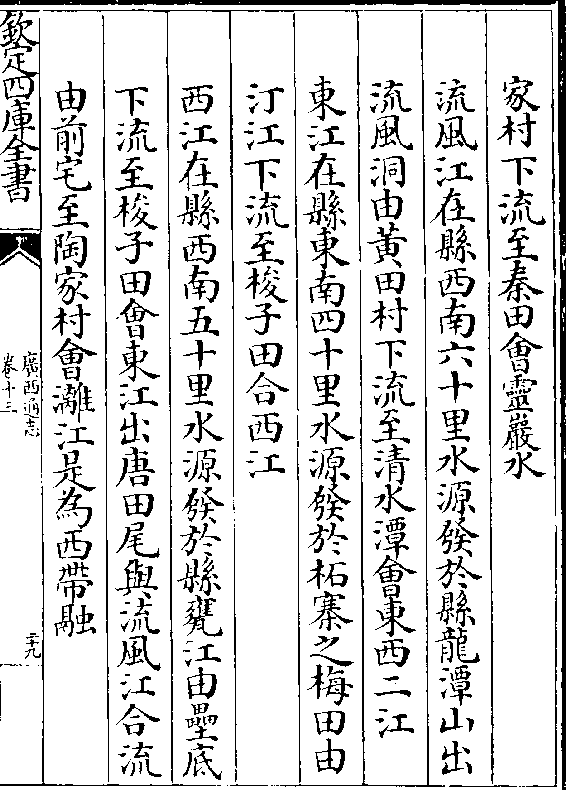 家村下流至秦田會靈巖水
流風江在縣西南六十里水源發於縣龍潭山出
流風洞由黃田村下流至清水潭會東西二江
東江在縣東南四十里水源發於柘寨之梅田由
汀江下流至梭子田合西江
西江在縣西南五十里水源發於縣甕江由壘底
下流至梭子田會東江出唐田尾與流風江合流
由前宅至陶家村會灕江是為西帶融
欽定四庫全書
廣西通志
卷十三
二十九